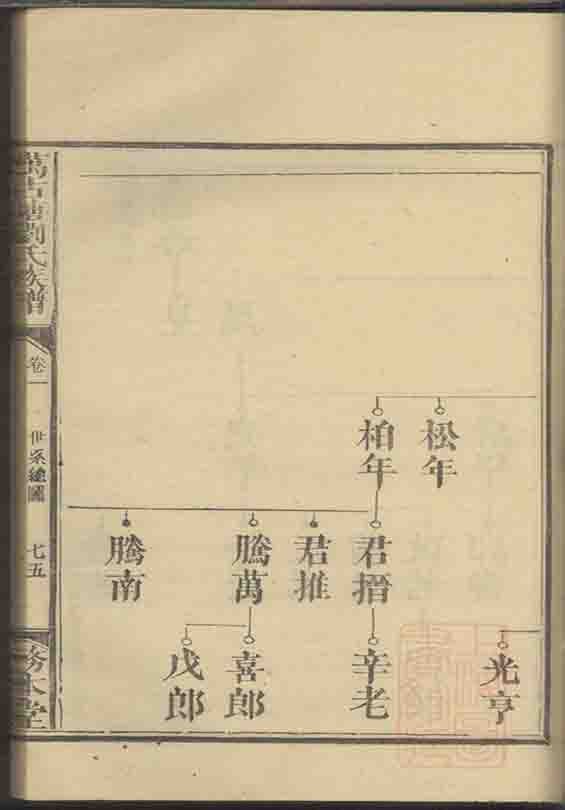 松年
柏年
君搢
君推
騰萬
騰南
光亨
辛老
喜郎
戊郎
萬古塘劉氏族譜
卷一
世系總圖
七五
務本堂